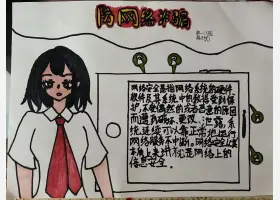 防网络诈骗
网络安全是指网络系统的硬件
软件及其系统中的数据受到保
护,不因偶然的或者恶意的原因
而遭到破坏、更改、泄露,系
统连续可以靠正常地运行
网络服务不中断。网络安全从
本质上来讲就是网络上的
信息安全。